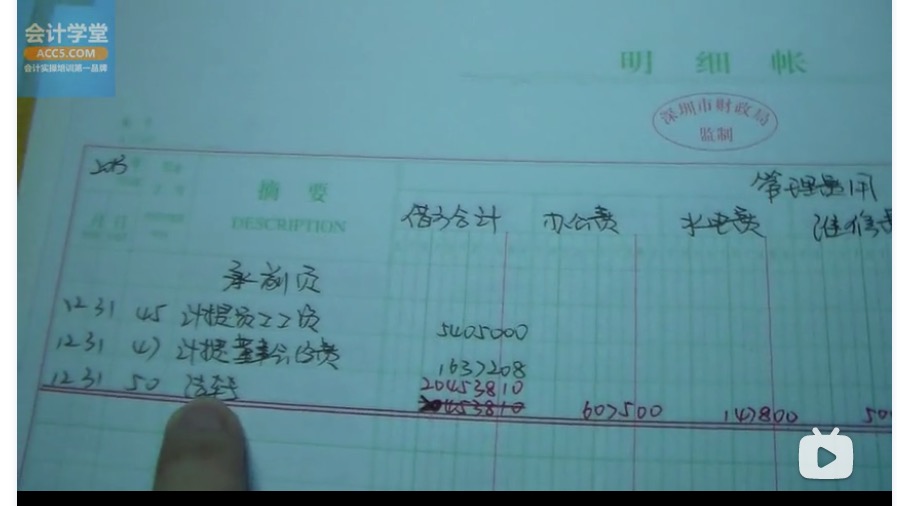 会计学堂
ACC5.COM
会计实操培训第一品牌
明 细 帐
深圳市财政局
监制
2013 年
管理费用
摘 要
DESCRIPTION
借方合计 办公费 水电费 维修费
承前页
12 31 45 计提员工工资 5405000
12 31 47 计提董事会经费 1637208
12 31 50 结转 20453810
20453810 607500 147800 500